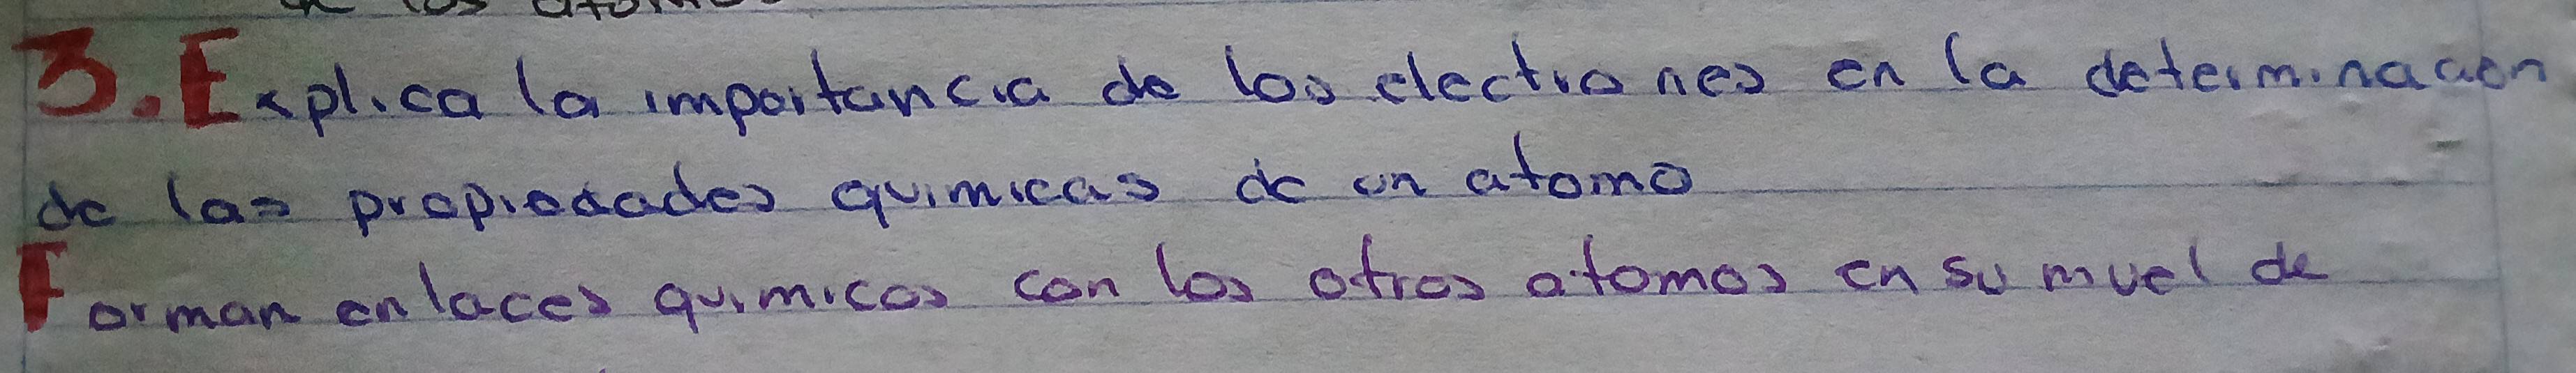 de los atomos
3. Explica la importancia de los electrones en la determinacion
de las propiedades quimicas de un atomo
Forman enlaces quimicos con los otros atomos en su nivel de